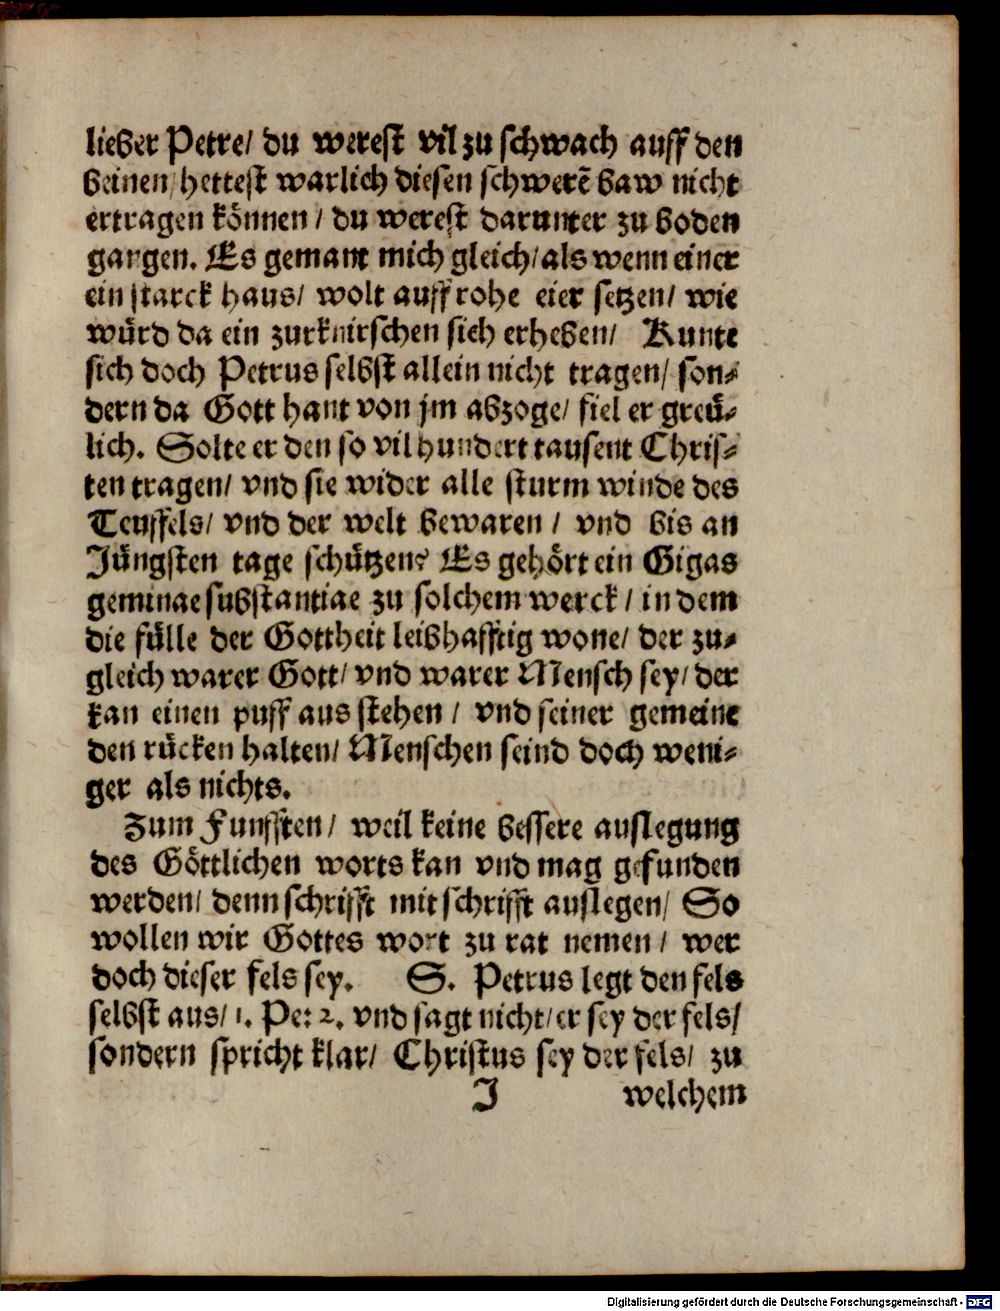 lieber Petre/ du werest vil zu schwach auff den
beinen/ hettest warlich diesen schwerẽ baw nicht
ertragen können / du werest darunter zu boden
gargen. Es gemant mich gleich/ als wenn einer
ein starck haus/ wolt auff rohe eier setzen/ wie
würd da ein zurknirschen sich erheben/ Kunte
sich doch Petrus selbst allein nicht tragen/ son⸗
dern da Gott hant von jm abzoge/ fiel er greü⸗
lich. Solte er den so vil hundert tausent Chris⸗
ten tragen/ vnd sie wider alle sturm winde des
Teuffels/ vnd der welt bewaren / vnd bis an
Jüngsten tage schützen? Es gehört ein Gigas
geminae substantiae zu solchem werck / in dem
die fülle der Gottheit leibhafftig wone/ der zu⸗
gleich warer Gott/ vnd warer Mensch sey/ der
kan einen puff aus stehen / vnd seiner gemeine
den rücken halten/ Menschen seind doch weni⸗
ger als nichts.
Zum Funfften / weil keine bessere auslegung
des Göttlichen worts kan vnd mag gefunden
werden/ denn schrifft mit schrifft auslegen/ So
wollen wir Gottes wort zu rat nemen / wer
doch dieser fels sey. S. Petrus legt den fels
selbst aus/ 1. Pet 2. vnd sagt nicht/ er sey der fels/
sondern spricht klar/ Christus sey der fels/ zu
J welchem
Digitalisierung gefördert durch die Deutsche Forschungsgemeinschaft - DFG